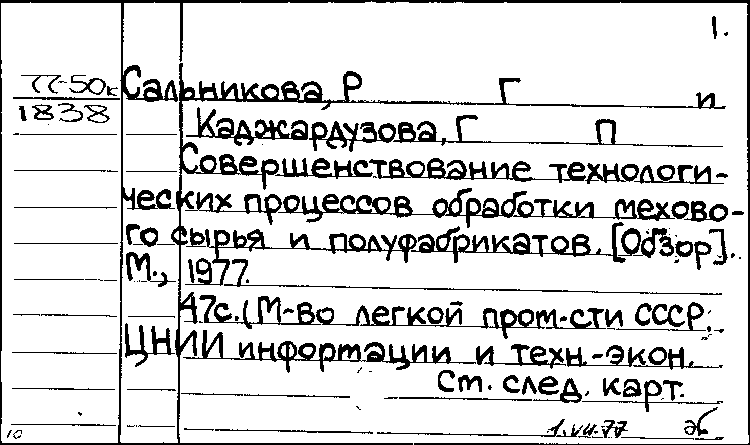 1.
77-50к Сальникова, Р Г и
1838 Каджардузова, Г П
Совершенствование технологи-
ческих процессов обработки мехово-
го сырья и полуфабрикатов. [Обзор].
М., 1977.
47с. (М-во легкой пром-сти СССР.
ЦНИИ информации и техн.-экон.
См. след. карт.
10 1.VII.77